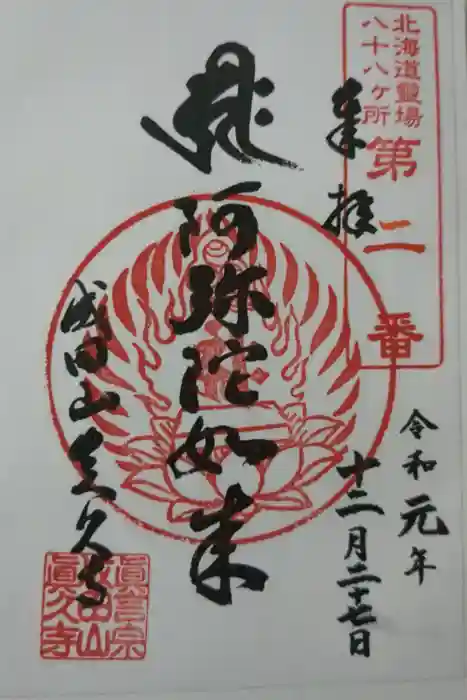 北海道霊場
八十八ヶ所
第二番
奉拝
令和元年
十二月二十七日
阿弥陀如来
成田山真久寺
真言宗
成田山
眞久寺